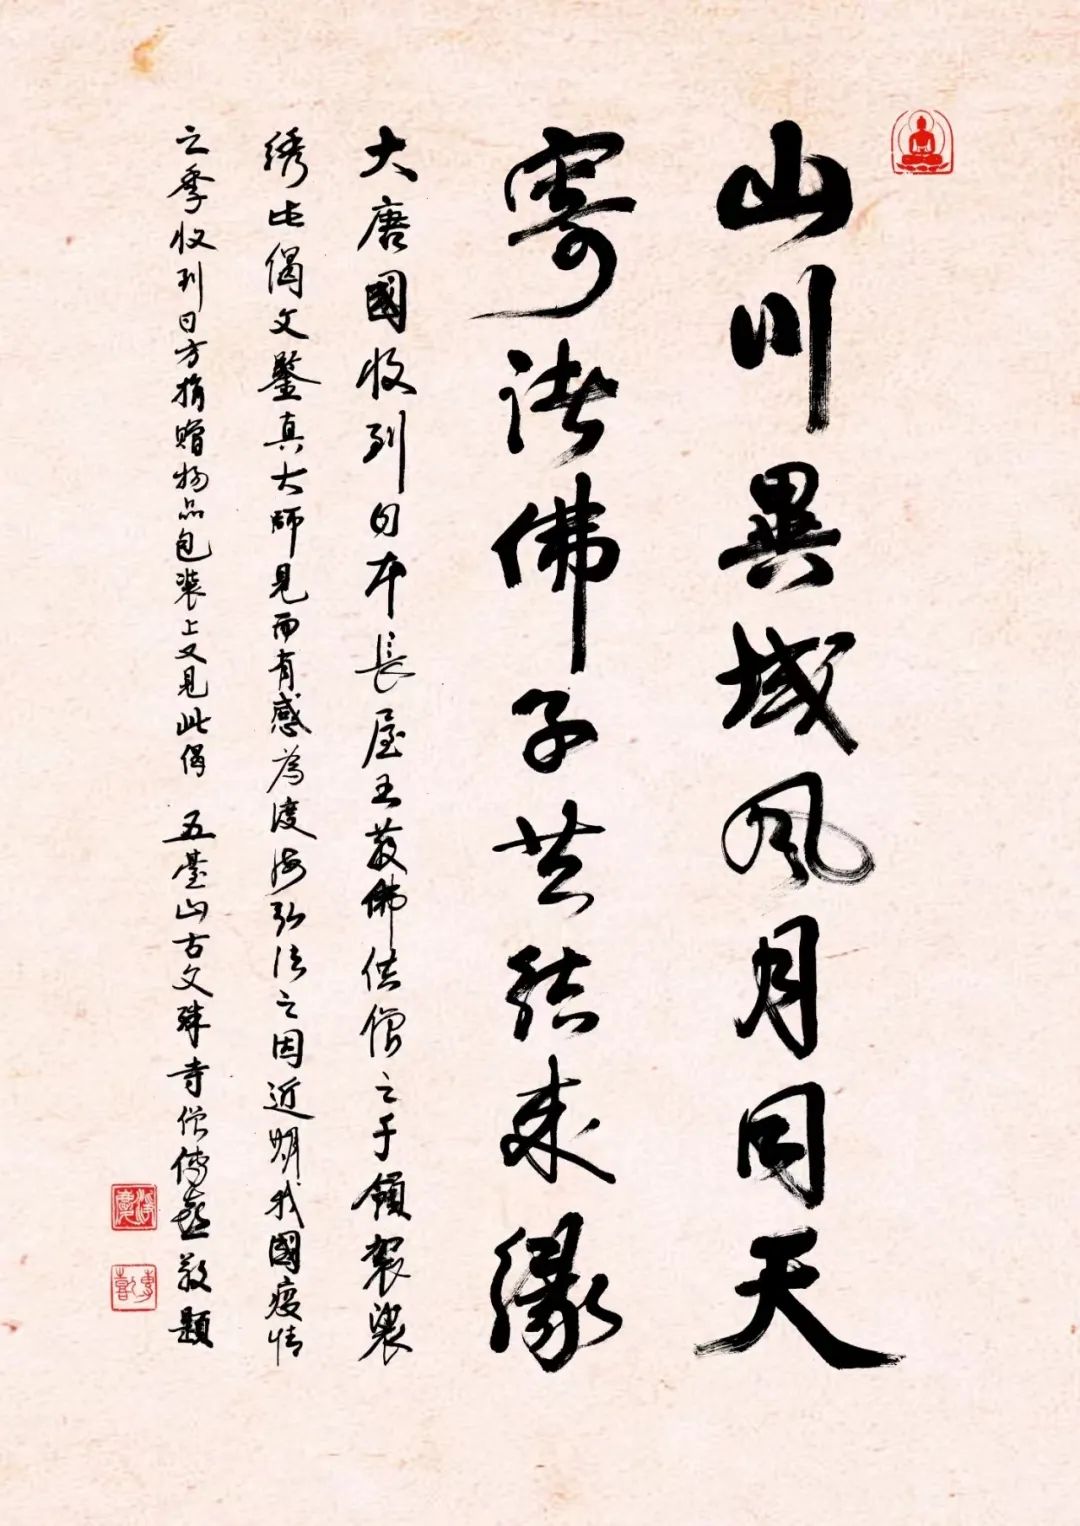 山川異域风月同天
寄诸佛子共结来缘
大唐國收到日本長屋王敬佛供僧之千領袈裟
绣此偈文鑒真大師見而有感為渡海弘法之因近期我國疫情
之季收到日方捐赠物品包装上又見此偈 五臺山古文殊寺僧傳喜敬題
傳喜